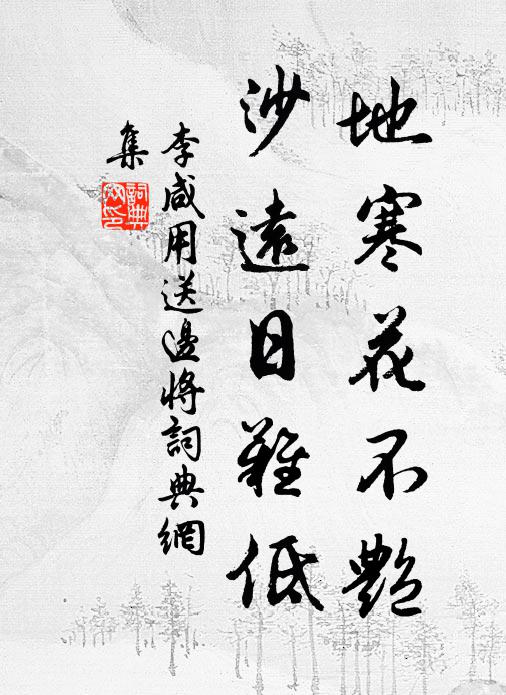 地寒花不艷
沙遠日難低
李咸用送邊將詞典網
集
詞典
网印